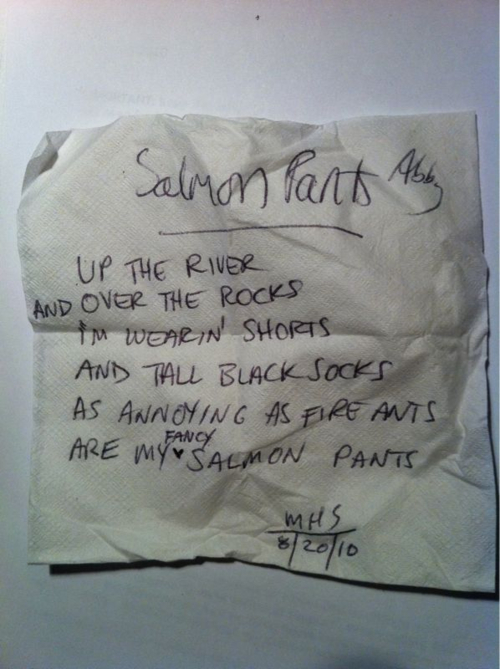 Salmon Pants Abby
UP THE RIVER
AND OVER THE ROCKS
I'M WEARIN' SHORTS
AND TALL BLACK SOCKS
AS ANNOYING AS FIRE ANTS
ARE MY FANCY SALMON PANTS
MHS
8/20/10